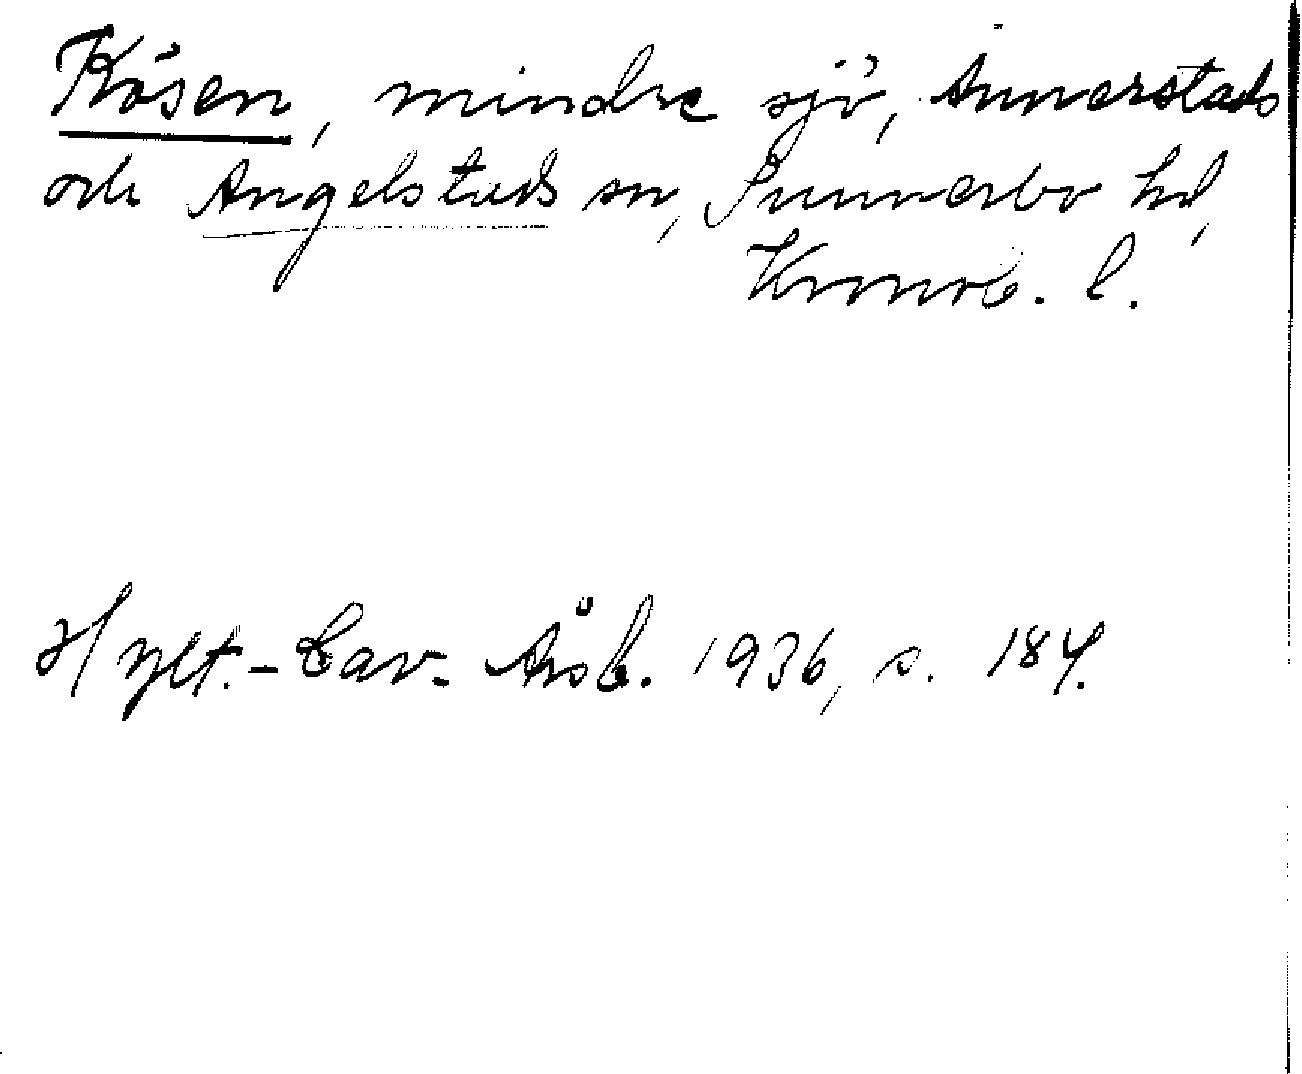 Kösen, mindre sjö, Annerstads
och Angelstads sn, Sunnerbo hd,
Kronob. l.
Hylt.-Cav. Årsb. 1936, s. 184.